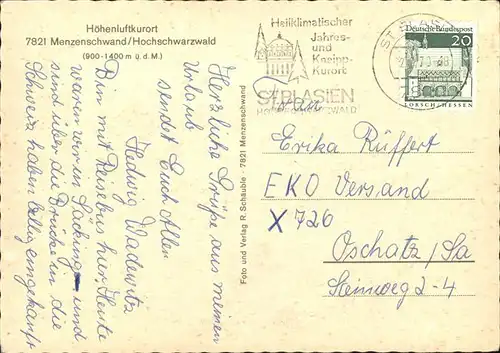 Höhenluftkurort
7821 Menzenschwand/Hochschwarzwald
(900-1400 m ü. d. M.)
Herzliche Grüße aus meinem
Urlaub
sendet Euch Allen
Hedwig Wadewitz
Bin mit Reisebus hier, Heute
waren wir in Säckingen und
sind über die Brücke in die
Schweiz, haben billig eingekauft
Foto und Verlag R. Schäuble · 7821 Menzenschwand
Heilklimatischer
Jahres-
und
Kneipp-
Kurort
ST.BLASIEN
HOCHSCHWARZWALD
ST. BLASIEN
Deutsche Bundespost
20
LORSCH/HESSEN
Frau
Erika Rüffert
EKO Versand
X 726
Oschatz/Sa
Steinweg 2-4